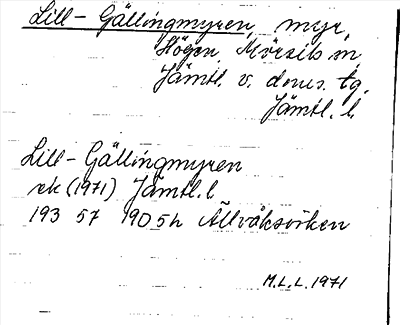 Lill-Gällingmyren, myr,
Högen, Mörsils sn,
Jämtl. v. doms. tg.
Jämtl. l.
Lill-Gällingmyren
ek (1971) Jämtl. l
193 57 190 5h Ällvåksviken
M.L.L. 1971